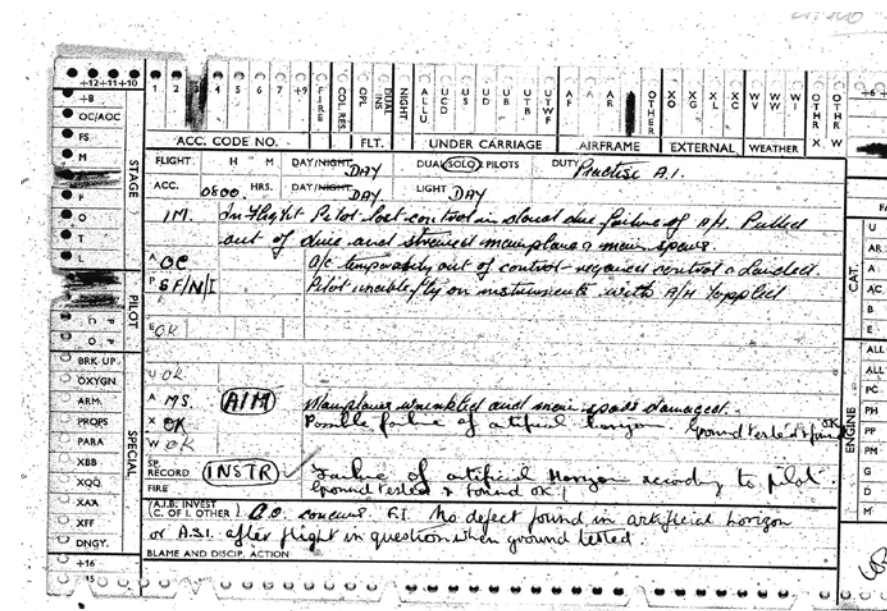 +12+11+10 1 2 4 5 6 7 +9 FIRE COL RES. OPL DUAL INS NIGHT ALLU UCD US UD UB UTB UTWF AF A AR OTHER XO XG XL XC WV WW WI OTHR X OTHR W
+8
OC/AOC
FS
M
P
O
T
L
STAGE
PILOT
BRK UP
OXYGN
ARM.
PROPS
PARA
XBB
XQQ
XAX
XFF
DNGY.
+16
SPECIAL
ACC. CODE NO. FLT. UNDER CARRIAGE AIRFRAME EXTERNAL WEATHER
FLIGHT H M DAY/NIGHT DAY DUAL SOLO 2 PILOTS DUTY Practise A.I.
ACC. 0800 HRS. DAY/NIGHT DAY LIGHT DAY
IM. In flight Pilot lost control in cloud due failure of A/H. Pulled
out of dive and strained mainplane & main spars.
A OC A/c temporarily out of control - regained control & landed.
P SF/N/I Pilot unable fly on instruments with A/H toppled
E OK
U OK
A MS. (AIM) Mainplanes wrinkled and main spars damaged.
X OK Possible failure of artificial horizon. Ground tested & found OK
W OK
SP. RECORD (INSTR) Failure of artificial Horizon according to pilot.
FIRE Ground tested & found OK!
(A.I.B. INVEST
(C. OF I. OTHER) C.O. concurs. F.I. No defect found in artificial horizon
or A.S.I. after flight in question when ground tested
BLAME AND DISCIP. ACTION
CAT.
U
AR
A
AC
B
E
ENGINE
ALL
ALL
PC
PH
PP
PM
G
D
M